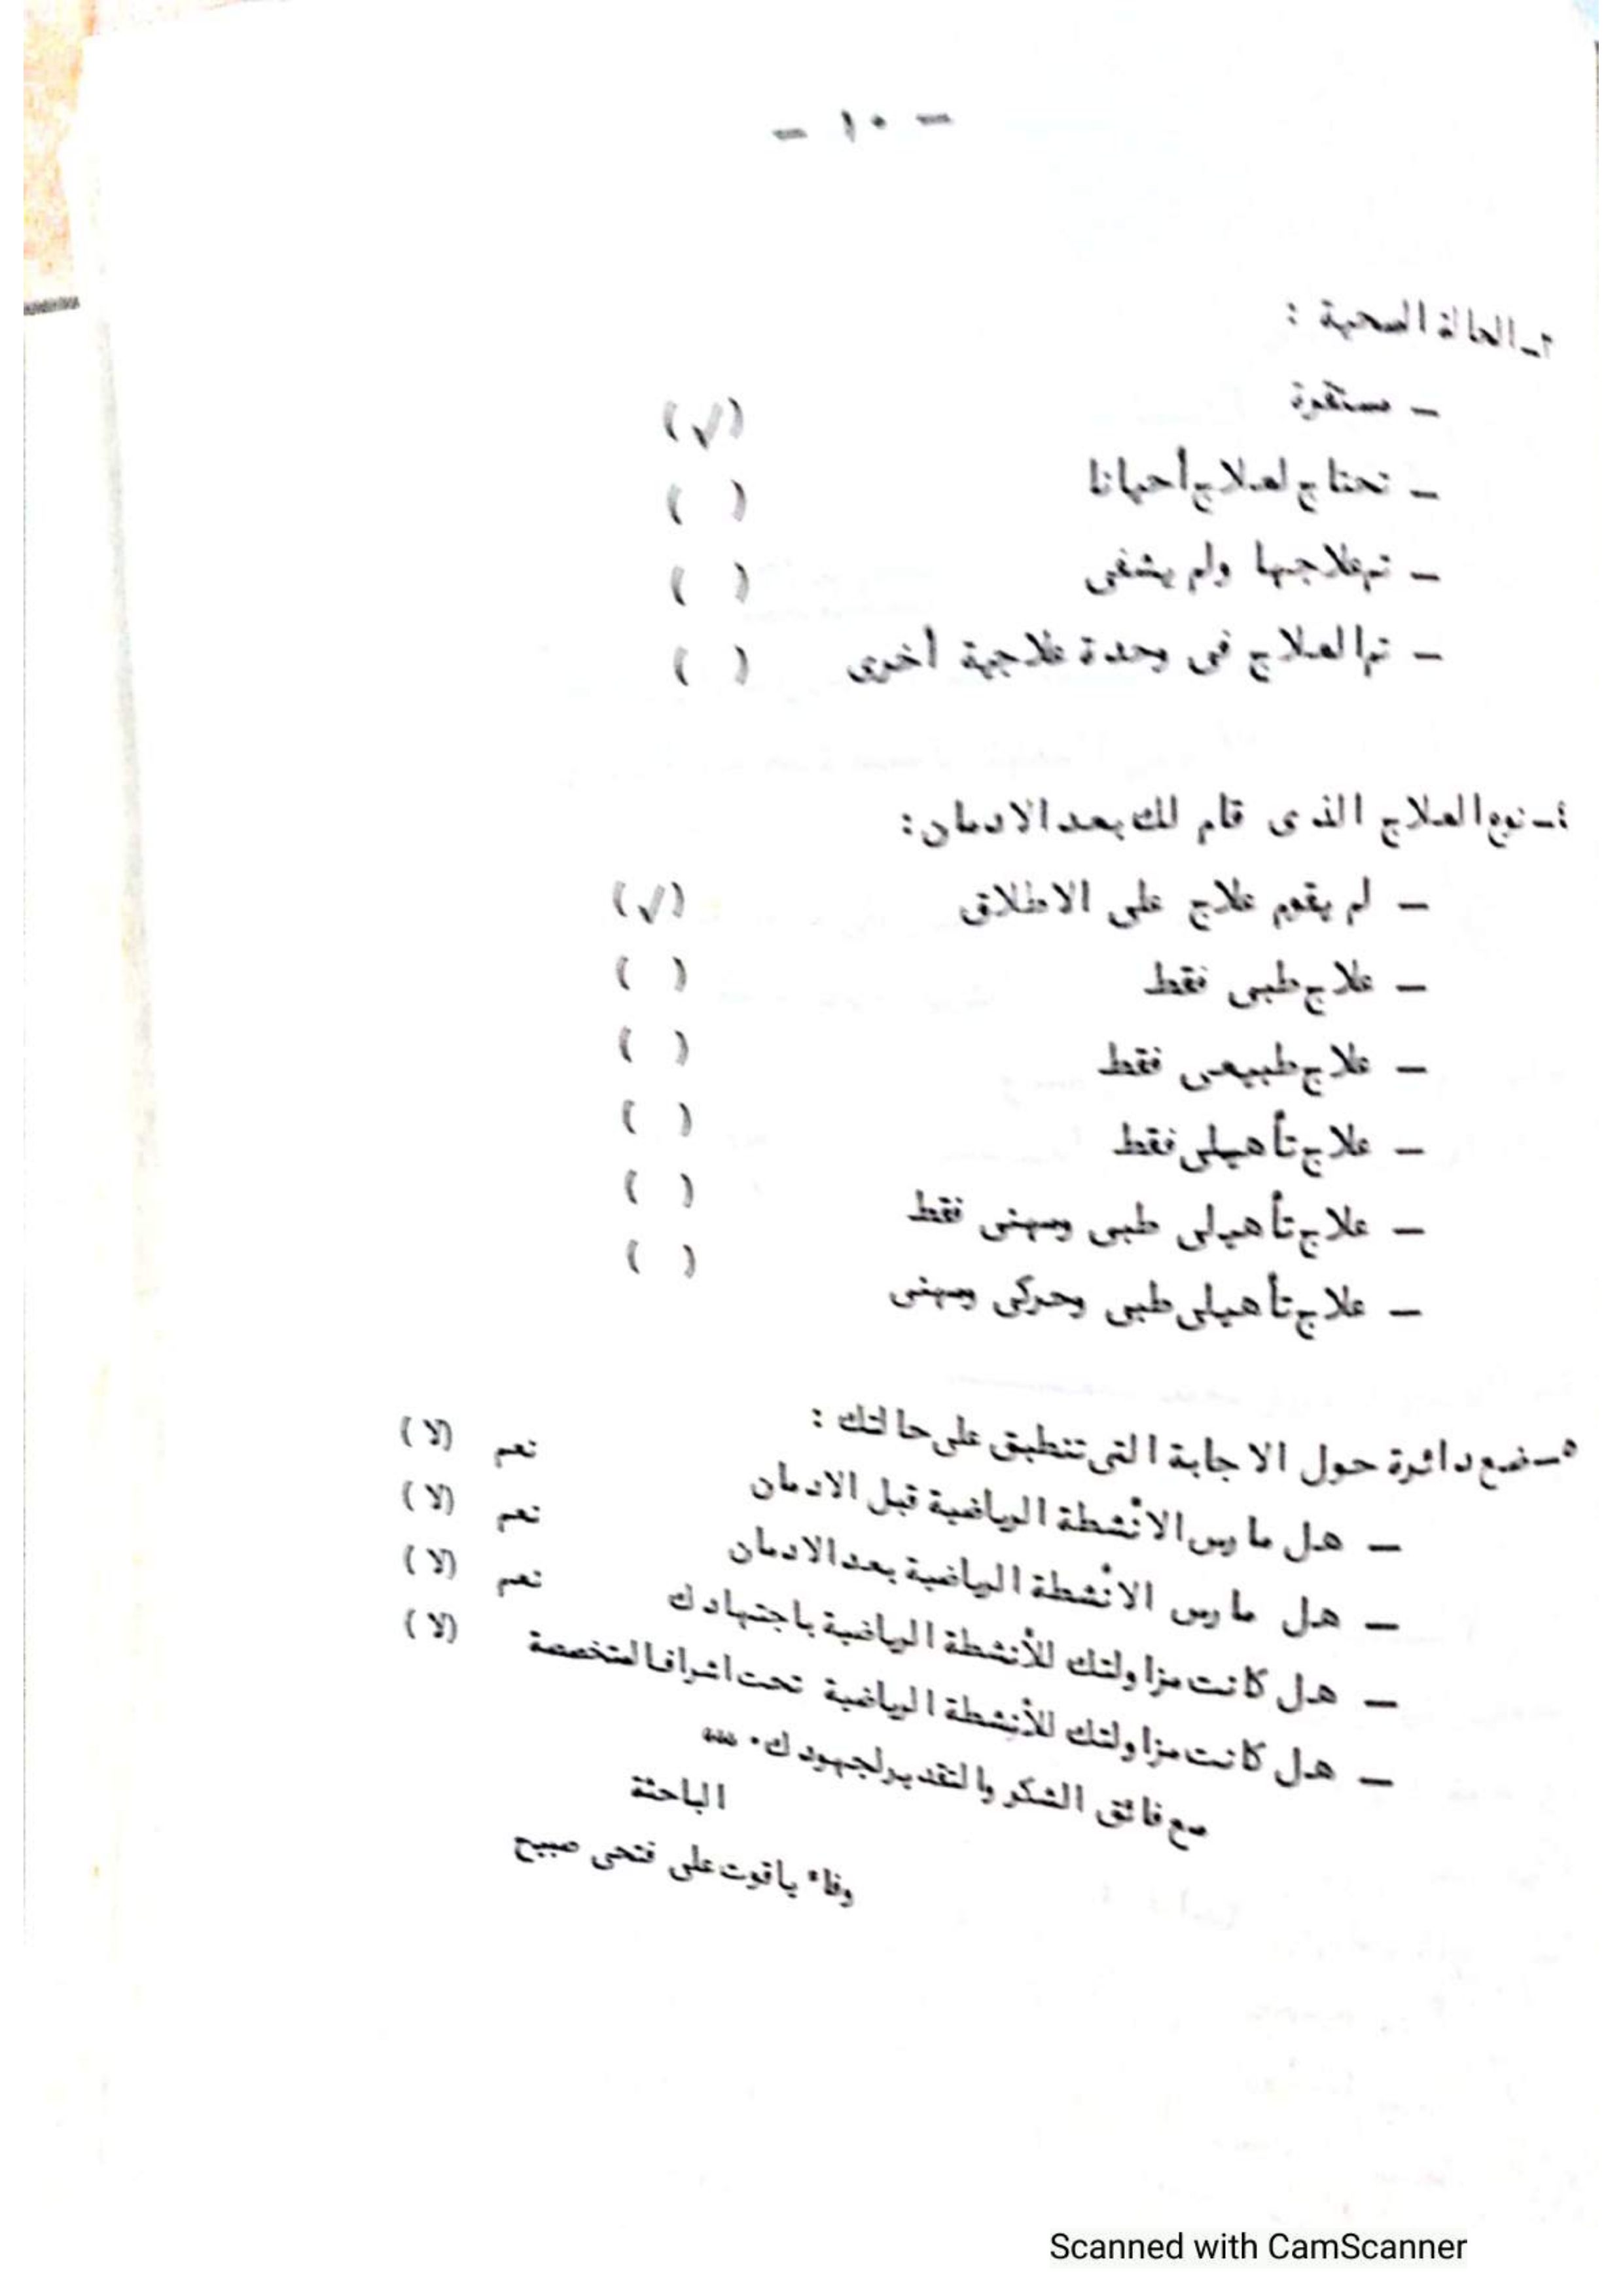 - ١٠ -
٣ـ الحالة الصحية :
- مستقرة (√)
- تحتاج لعلاج أحيانا ( )
- تم علاجها ولم يشفى ( )
- تم العلاج فى وحدة علاجية أخرى ( )
٤ـ نوع العلاج الذى قام لك بعد الادمان :
- لم يقوم علاج على الاطلاق (√)
- علاج طبى فقط ( )
- علاج طبيعى فقط ( )
- علاج تأهيلى فقط ( )
- علاج تأهيلى طبى ومهنى فقط ( )
- علاج تأهيلى طبى وحركى ومهنى ( )
٥ـ ضع دائرة حول الاجابة التى تنطبق على حالتك :
- هل مارس الانْشطة الرياضية قبل الادمان نعم (لا)
- هل مارس الانْشطة الرياضية بعد الادمان نعم (لا)
- هل كانت مزاولتك للأنشطة الرياضية باجتهادك نعم (لا)
- هل كانت مزاولتك للأنشطة الرياضية تحت اشراف المتخصصة (لا)
مع فائق الشكر والتقدير لجهودك ،،،
الباحثة
وفاء ياقوت على فتحى صبيح
Scanned with CamScanner